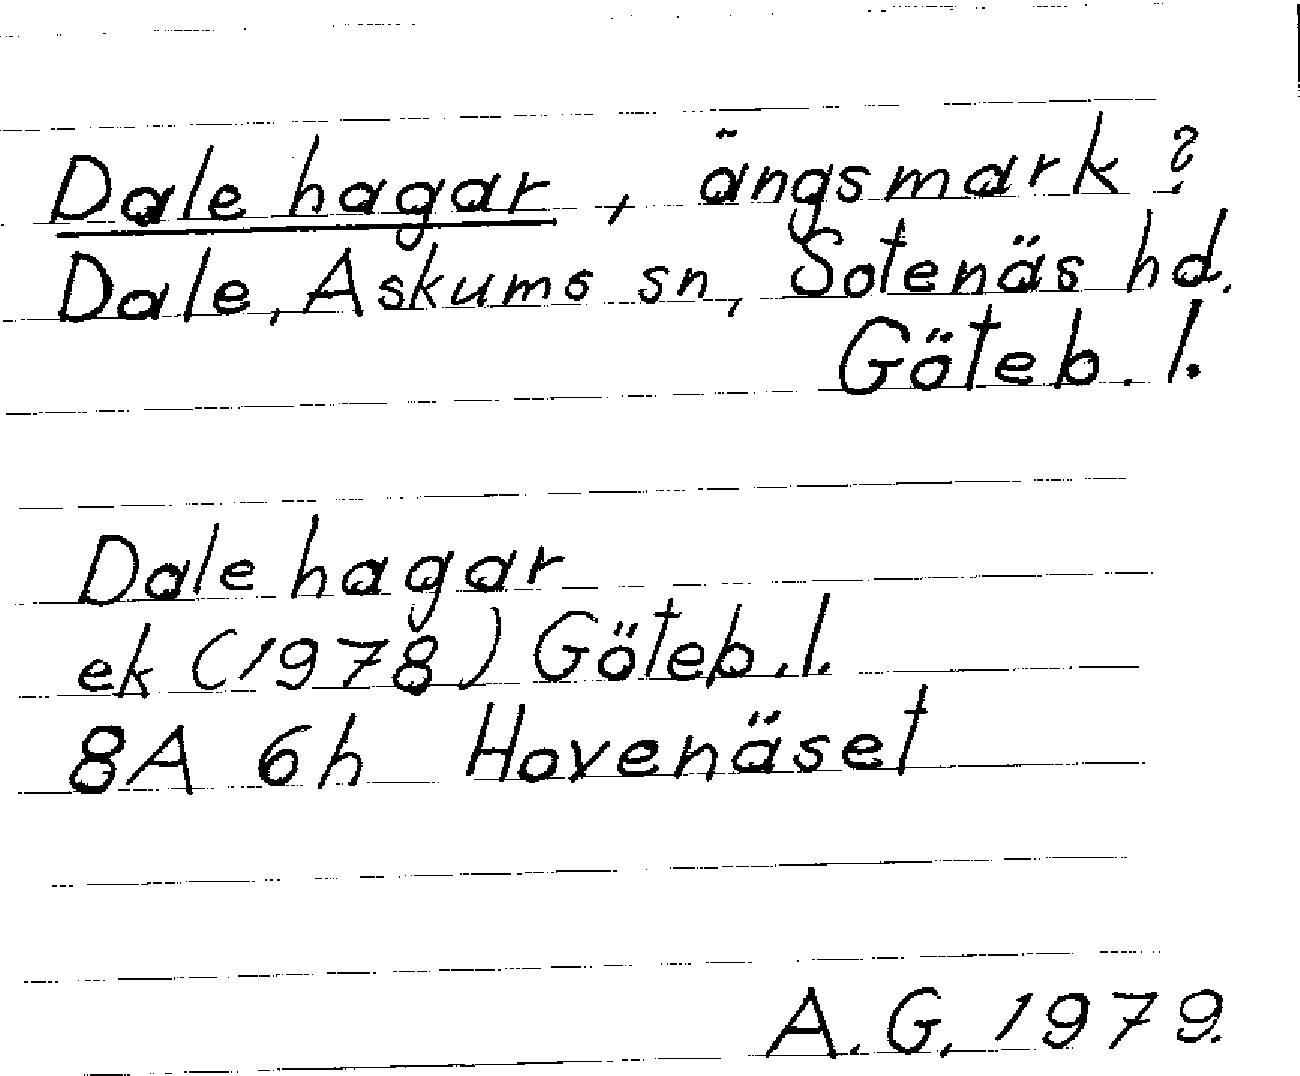 Dale hagar, ängsmark?
Dale, Askums sn, Sotenäs hd.
Göteb. l.
Dale hagar
ek (1978) Göteb. l.
8A 6h Hovenäset
A. G. 1979.